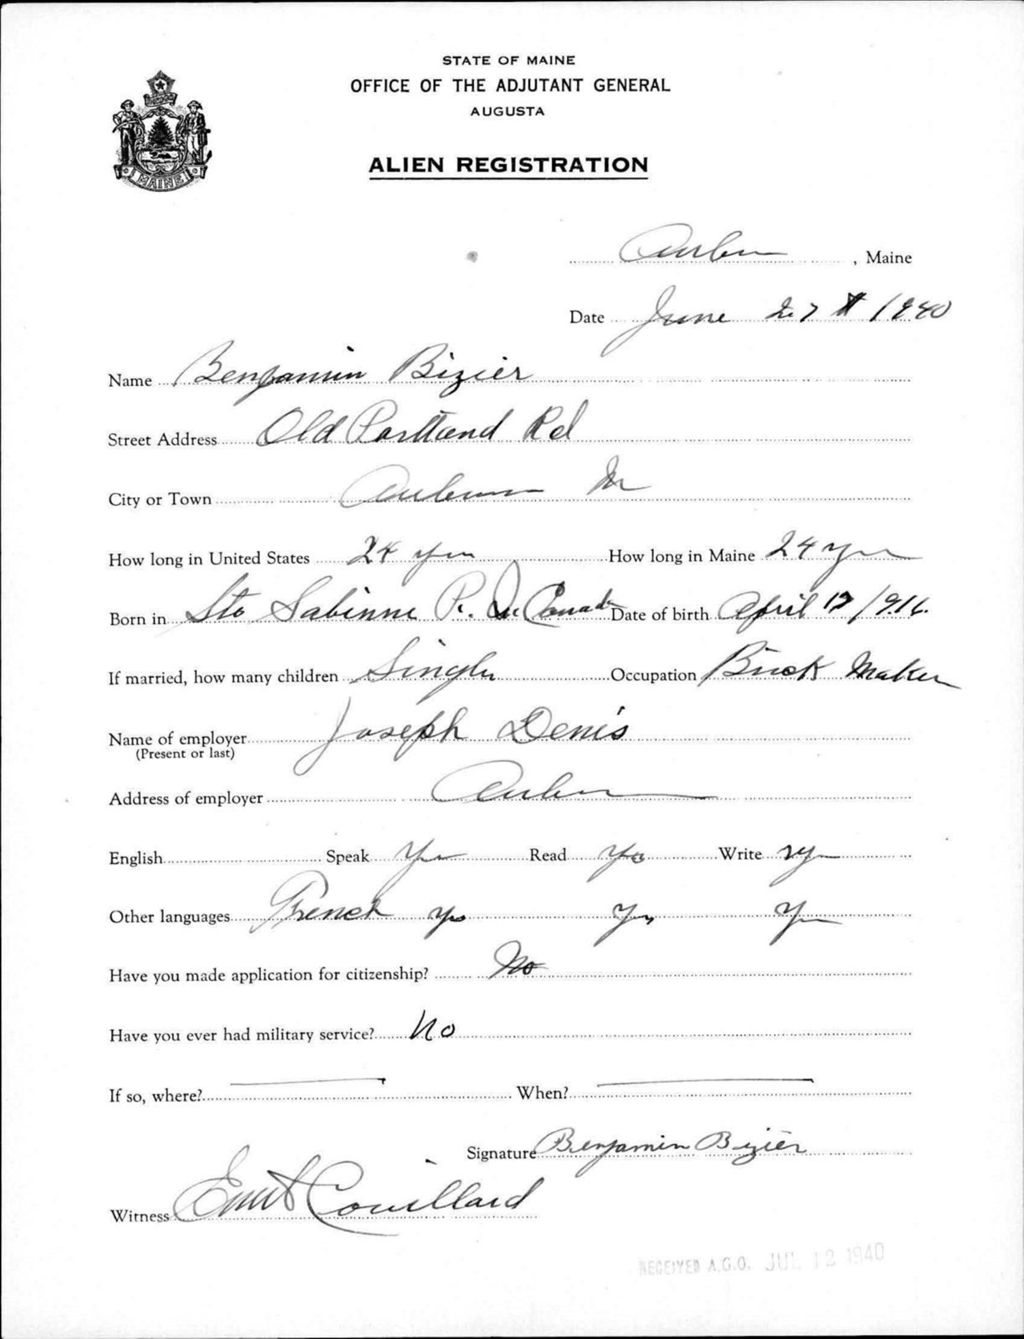 STATE OF MAINE
OFFICE OF THE ADJUTANT GENERAL
AUGUSTA
ALIEN REGISTRATION
MAINE
Auburn, Maine
Date June 27 1940
Name Benjamin Bizier
Street Address Old Portland Rd
City or Town Auburn Me
How long in United States 24 yrs How long in Maine 24 yrs
Born in Ste Sabinne P. Q. Canada Date of birth April 12 1916.
If married, how many children Single Occupation Brick Maker
Name of employer Joseph Denis
(Present or last)
Address of employer Auburn
English Speak Yes Read Yes Write Yes
Other languages French Yes Yes Yes
Have you made application for citizenship? No
Have you ever had military service? No
If so, where? When?
Signature Benjamin Bizier
Witness Couillard
RECEIVED A.G.O. JUL 12 1940